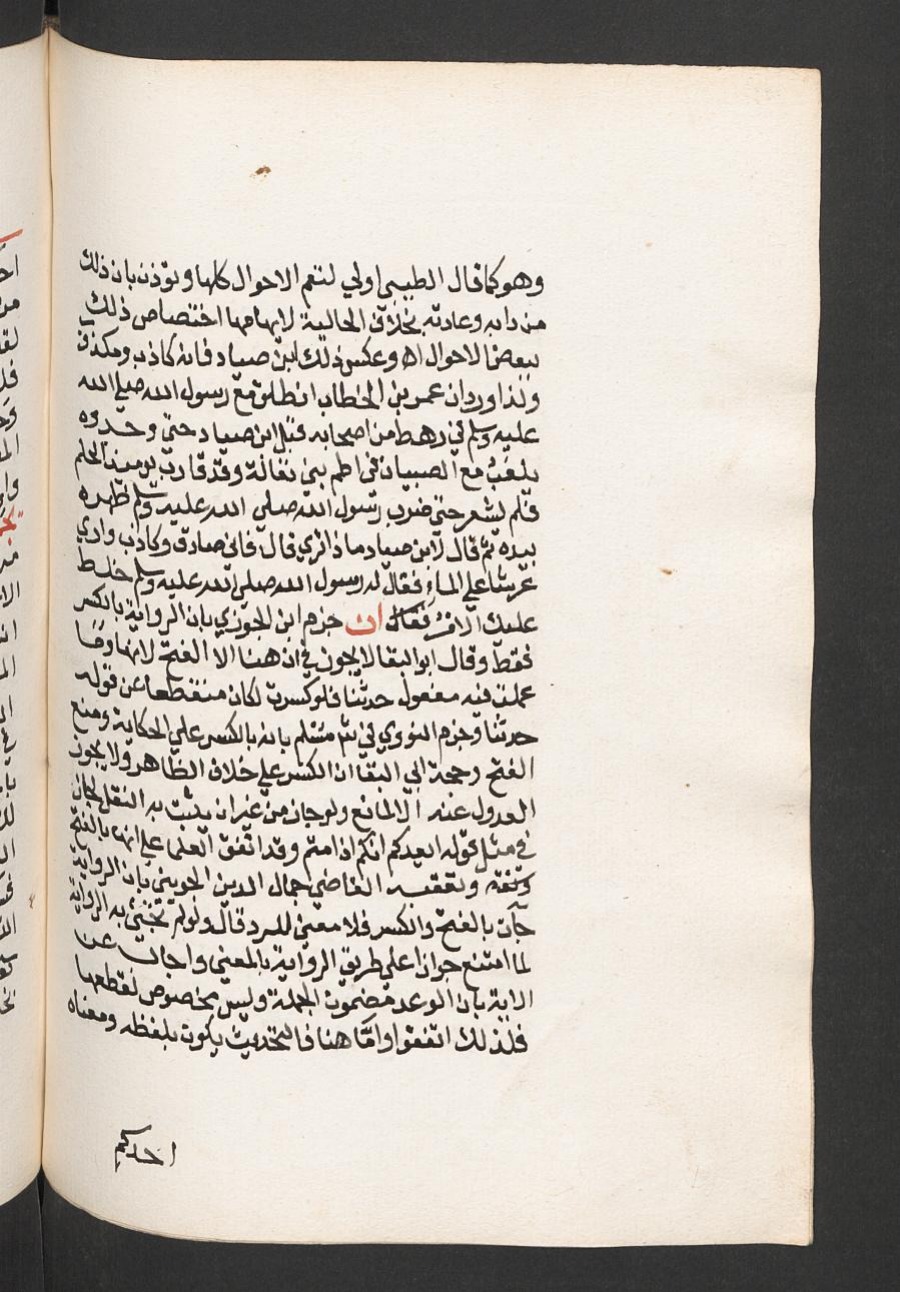 وهو كما قال الطيبي اولي لتعم الاحوال كلها وتوذن بان ذلك
من دابه وعادته بخلاف الحالية لايهامها اختصاص ذلك
ببعض الاحوال اه وعكس ذلك ابن صياد فانه كاذب ومكذوب
ولذا ورد ان عمر بن الخطاب انطلق مع رسول الله صلي الله
عليه وسلم في رهط من اصحابه قبل ابن صياد حتي وجدوه
يلعب مع الصبيان في اطم بني مغالة وقد قارب يومئذ الحلم
فلم يشعر حتي ضرب رسول الله صلي الله عليه وسلم ظهره
بيده ثم قال لابن صياد ما ذا تري قال فاني صادق وكاذب واري
عرشا علي الماء فقال له رسول الله صلي الله عليه وسلم خلط
عليك الامر فقال ان جزم ابن الجوزي بان الرواية بالكسر
فقط وقال ابو البقا لا يجوز في ان هنا الا الفتح لانها وما
عملت فيه مفعول حدثنا فلو كسرت لكان منقطعا عن قوله
حدثنا وجزم النووي في شم مسلم بانه بالكسر علي الحكاية ومنع
الفتح وحجة ابي البقا ان الكسر علي خلاف الظاهر ولا يجوز
العدول عنه الا لمانع ولو جاز من غير ان يثبت به النقل لجاز
في مثل قوله ايعدكم انكم اذا متم وقد اتفق العلما علي انها بالفتح
وتعقبه القاضي جمال الدين الخويني بان الرواية
جات بالفتح والكسر فلا معني للرد قال ولو لم تجئ به الرواية
لما امتنع جوازا علي طريق الرواية بالمعني واجاب عن
الاية بان الوعد مضمون الجملة وليس مخصوص لفظها
فلذلك اتفقوا واما هنا فالتحديث يكون بلفظه ومعناه
احدكم